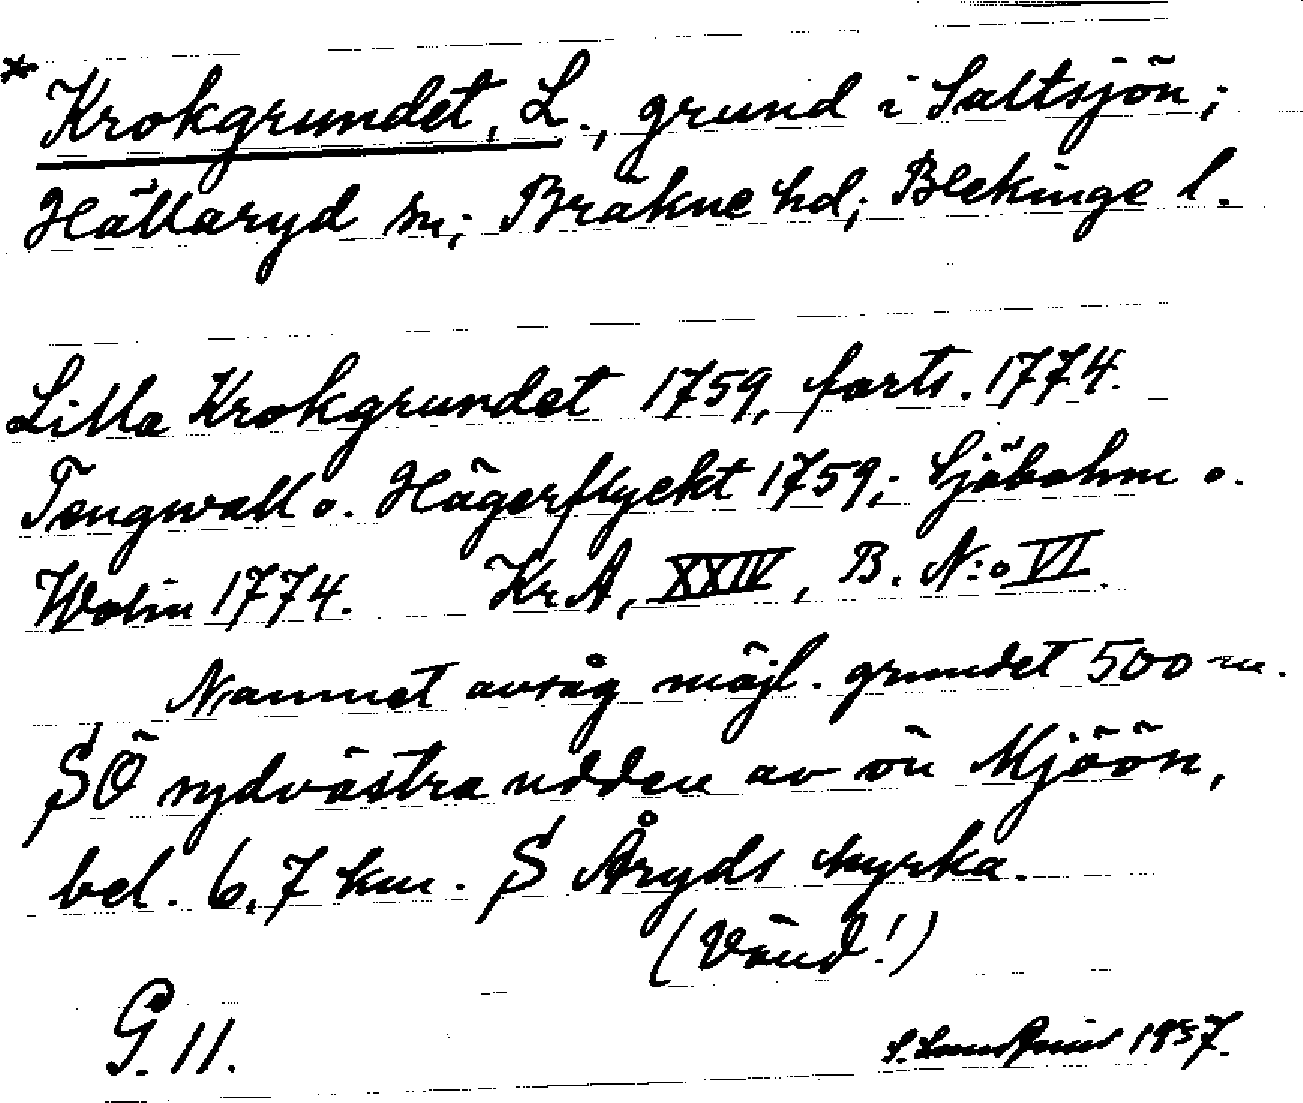 * Krokgrundet, L., grund i Saltsjön;
Hällaryd sn; Bräkne hd; Blekinge l.
Lilla Krokgrundet 1759, forts. 1774.
Tengwall o. Hägerflyckt 1759; Sjöbohm o.
Wolin 1774. KrA, XXIV, B. N:o VI.
Namnet avsåg möjl. grundet 500 m.
SÖ sydvästra udden av ön Mjöön,
bel. 6,7 km. S Åryds kyrka.
(Vänd!)
G. 11.
1957.